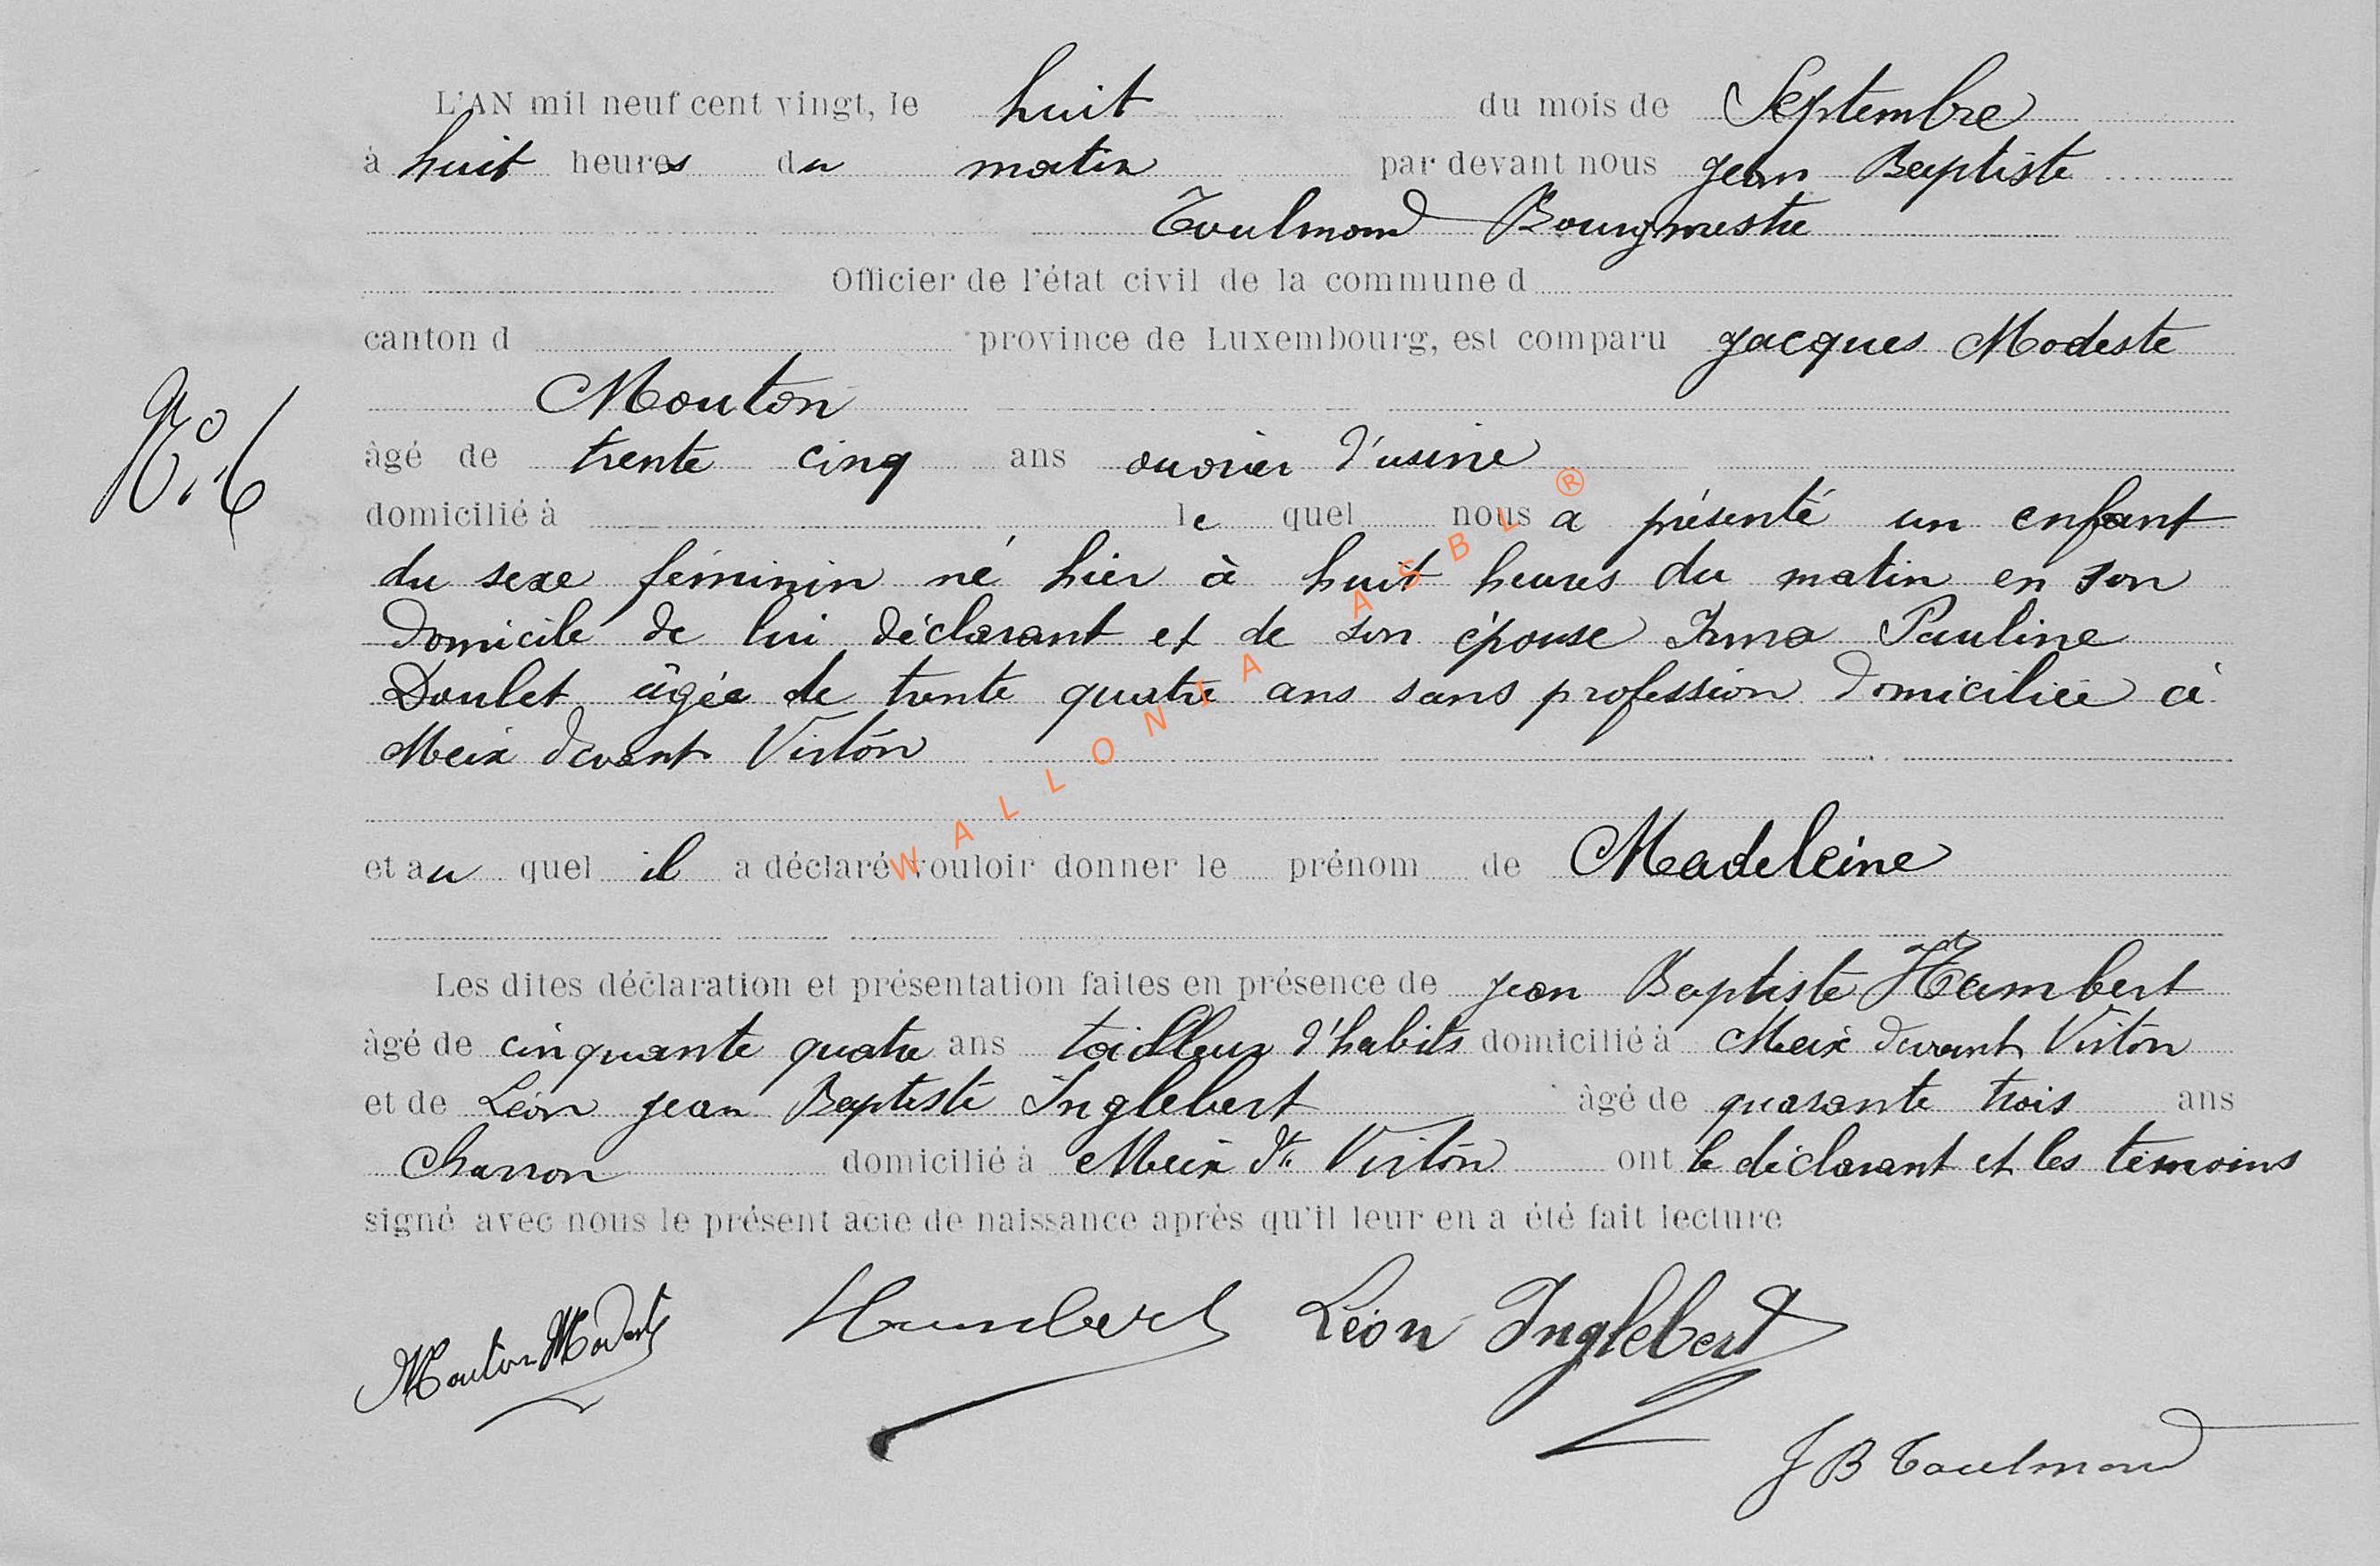 L'AN mil neuf cent vingt, le huit du mois de Septembre
à huit heures du matin par devant nous Jean Baptiste
Toulmond Bourgmestre
Officier de l'état civil de la commune d
canton d province de Luxembourg, est comparu Jacques Modeste
Mouton
âgé de trente cinq ans ouvrier d'usine
domicilié à le quel nous a présenté un enfant
du sexe féminin né hier à huit heures du matin en son
domicile de lui déclarant et de son épouse Irma Pauline
Doulet âgée de trente quatre ans sans profession domiciliée à
Meix devant Virton
et au quel il a déclaré vouloir donner le prénom de Madeleine
Les dites déclaration et présentation faites en présence de Jean Baptiste Humbert
âgé de cinquante quatre ans tailleur d'habits domicilié à Meix devant Virton
et de Léon Jean Baptiste Inglebert âgé de quarante trois ans
Charron domicilié à Meix dt. Virton ont le déclarant et les témoins
signé avec nous le présent acte de naissance après qu'il leur en a été fait lecture
Mouton Modeste Humbert Léon Inglebert
J B Toulmond
WALLONIA ASBL ®